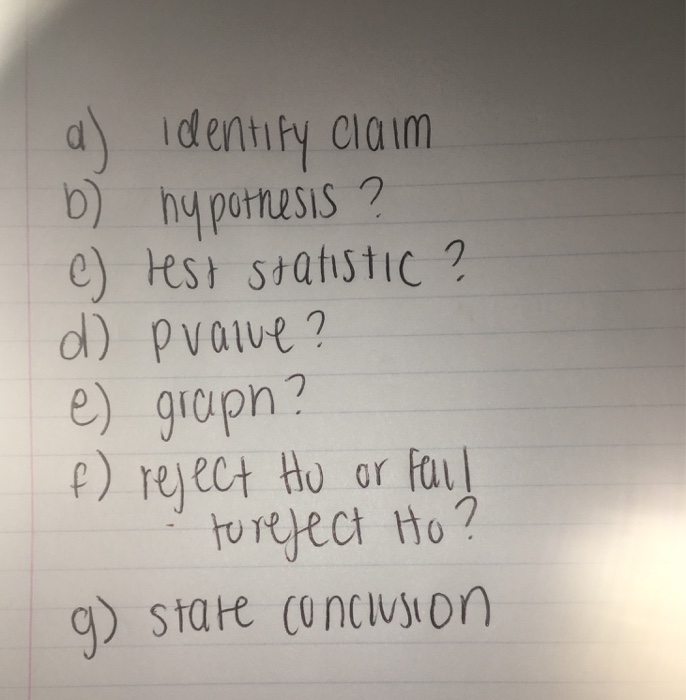 a) identify claim
b) hypothesis?
c) test statistic?
d) pvalue?
e) graph?
f) reject Ho or Fail
to reject Ho?
g) state conclusion